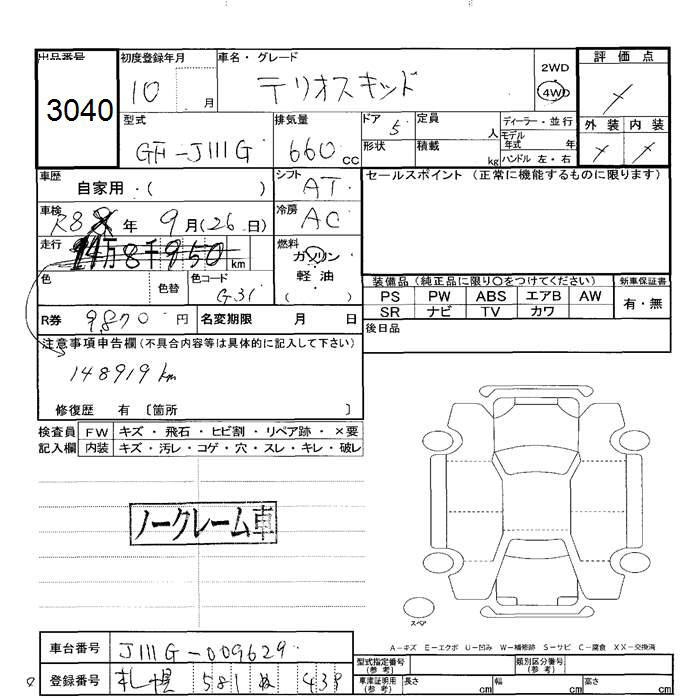 出品番号 初度登録年月 車名・グレード 2WD 評価点
3040 10 月 テリオスキッド 4WD
型式 排気量 ドア 定員 ディーラー・並行 外装 内装
GF-J111G 660 cc 5 人 モデル年式 年
形状 積載 kg ハンドル 左・右
車歴 シフト セールスポイント (正常に機能するものに限ります)
自家用・( ) AT
車検 R8 年 9月(26日) 冷房 AC
走行 14万8千950km 燃料 ガソリン
色 色替 色コード G31 軽油
装備品 (純正品に限り〇をつけてください) 新車保証書
PS PW ABS エアB AW 有・無
SR ナビ TV カワ
R券 9,870 円 名変期限 月 日 後日品
注意事項申告欄 (不具合内容等は具体的に記入して下さい)
148919km
修復歴 有 〔箇所 〕
検査員 FW キズ・飛石・ヒビ割・リペア跡・×要
記入欄 内装 キズ・汚レ・コゲ・穴・スレ・キレ・破レ
ノークレーム車
スペア
A-キズ E-エクボ U-凹み W-補修跡 S-サビ C-腐食 XX-交換済
車台番号 J111G-009629
型式指定番号 (参考) 類別区分番号 (参考)
登録番号 札幌 581 ぬ 439
車庫証明用 (参考) 長さ cm 幅 cm 高さ cm